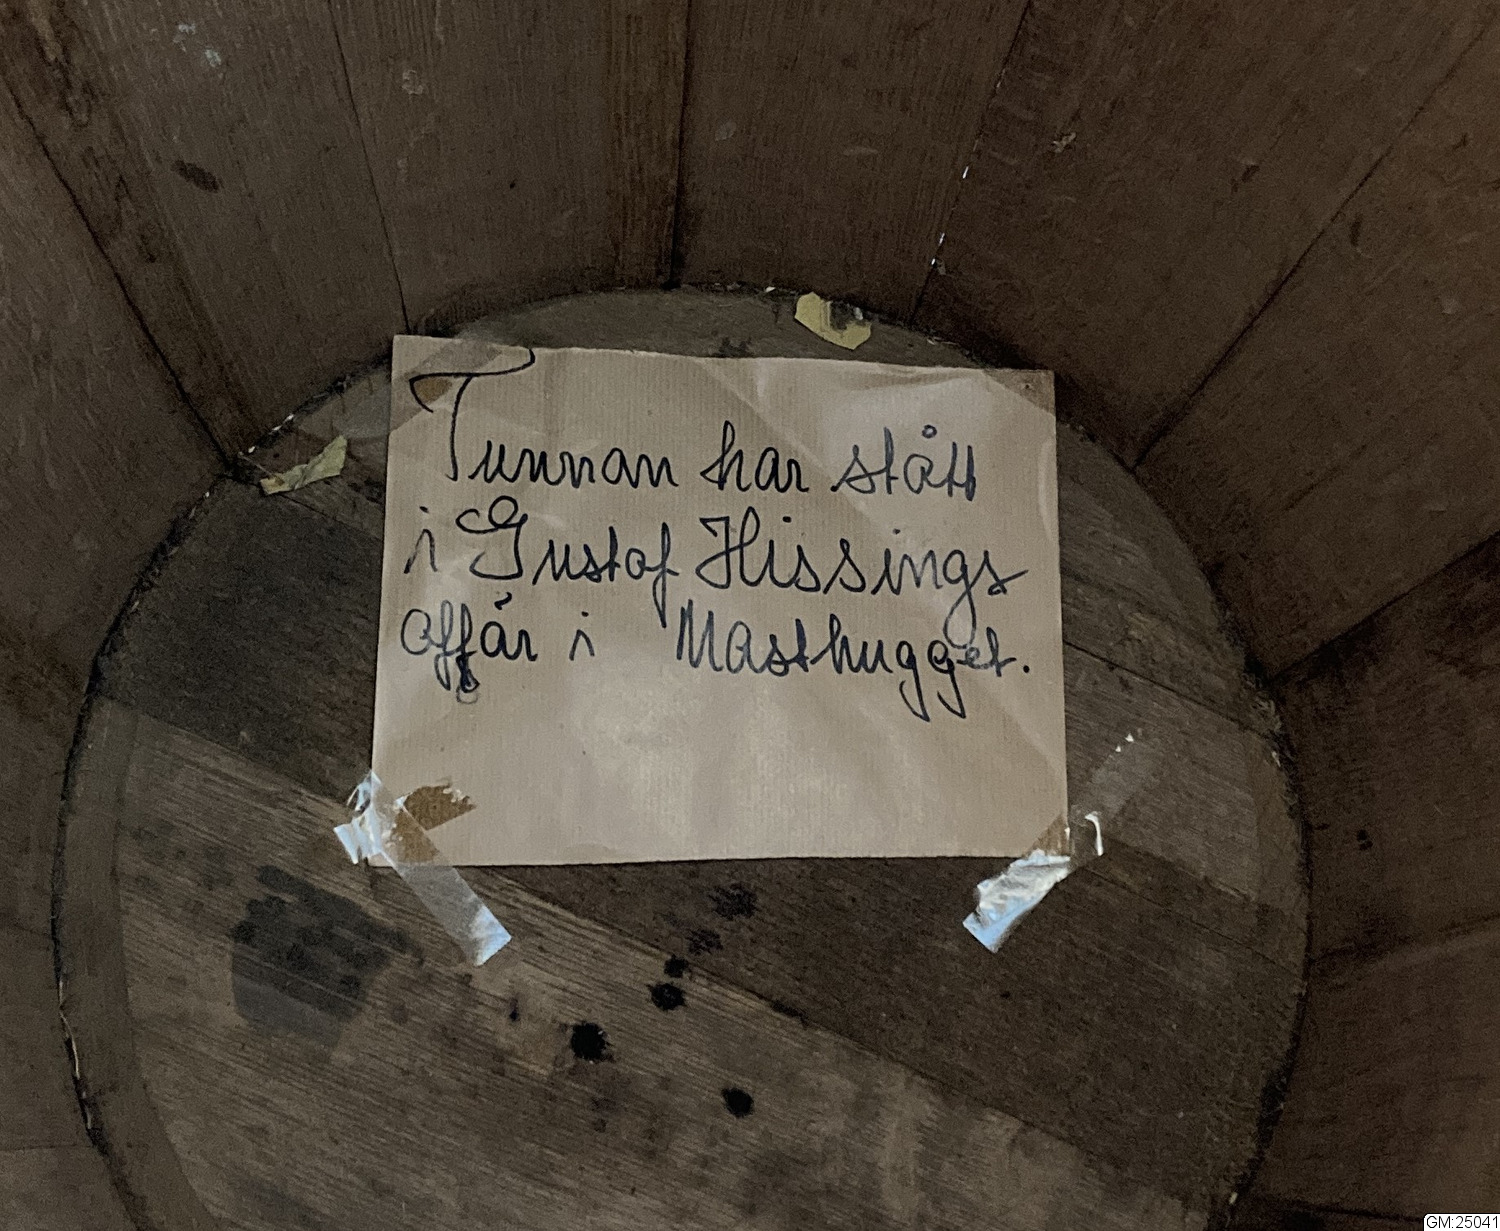 Tunnan har stått
i Gustaf Hissings
affär i Masthugget.
GM:25041